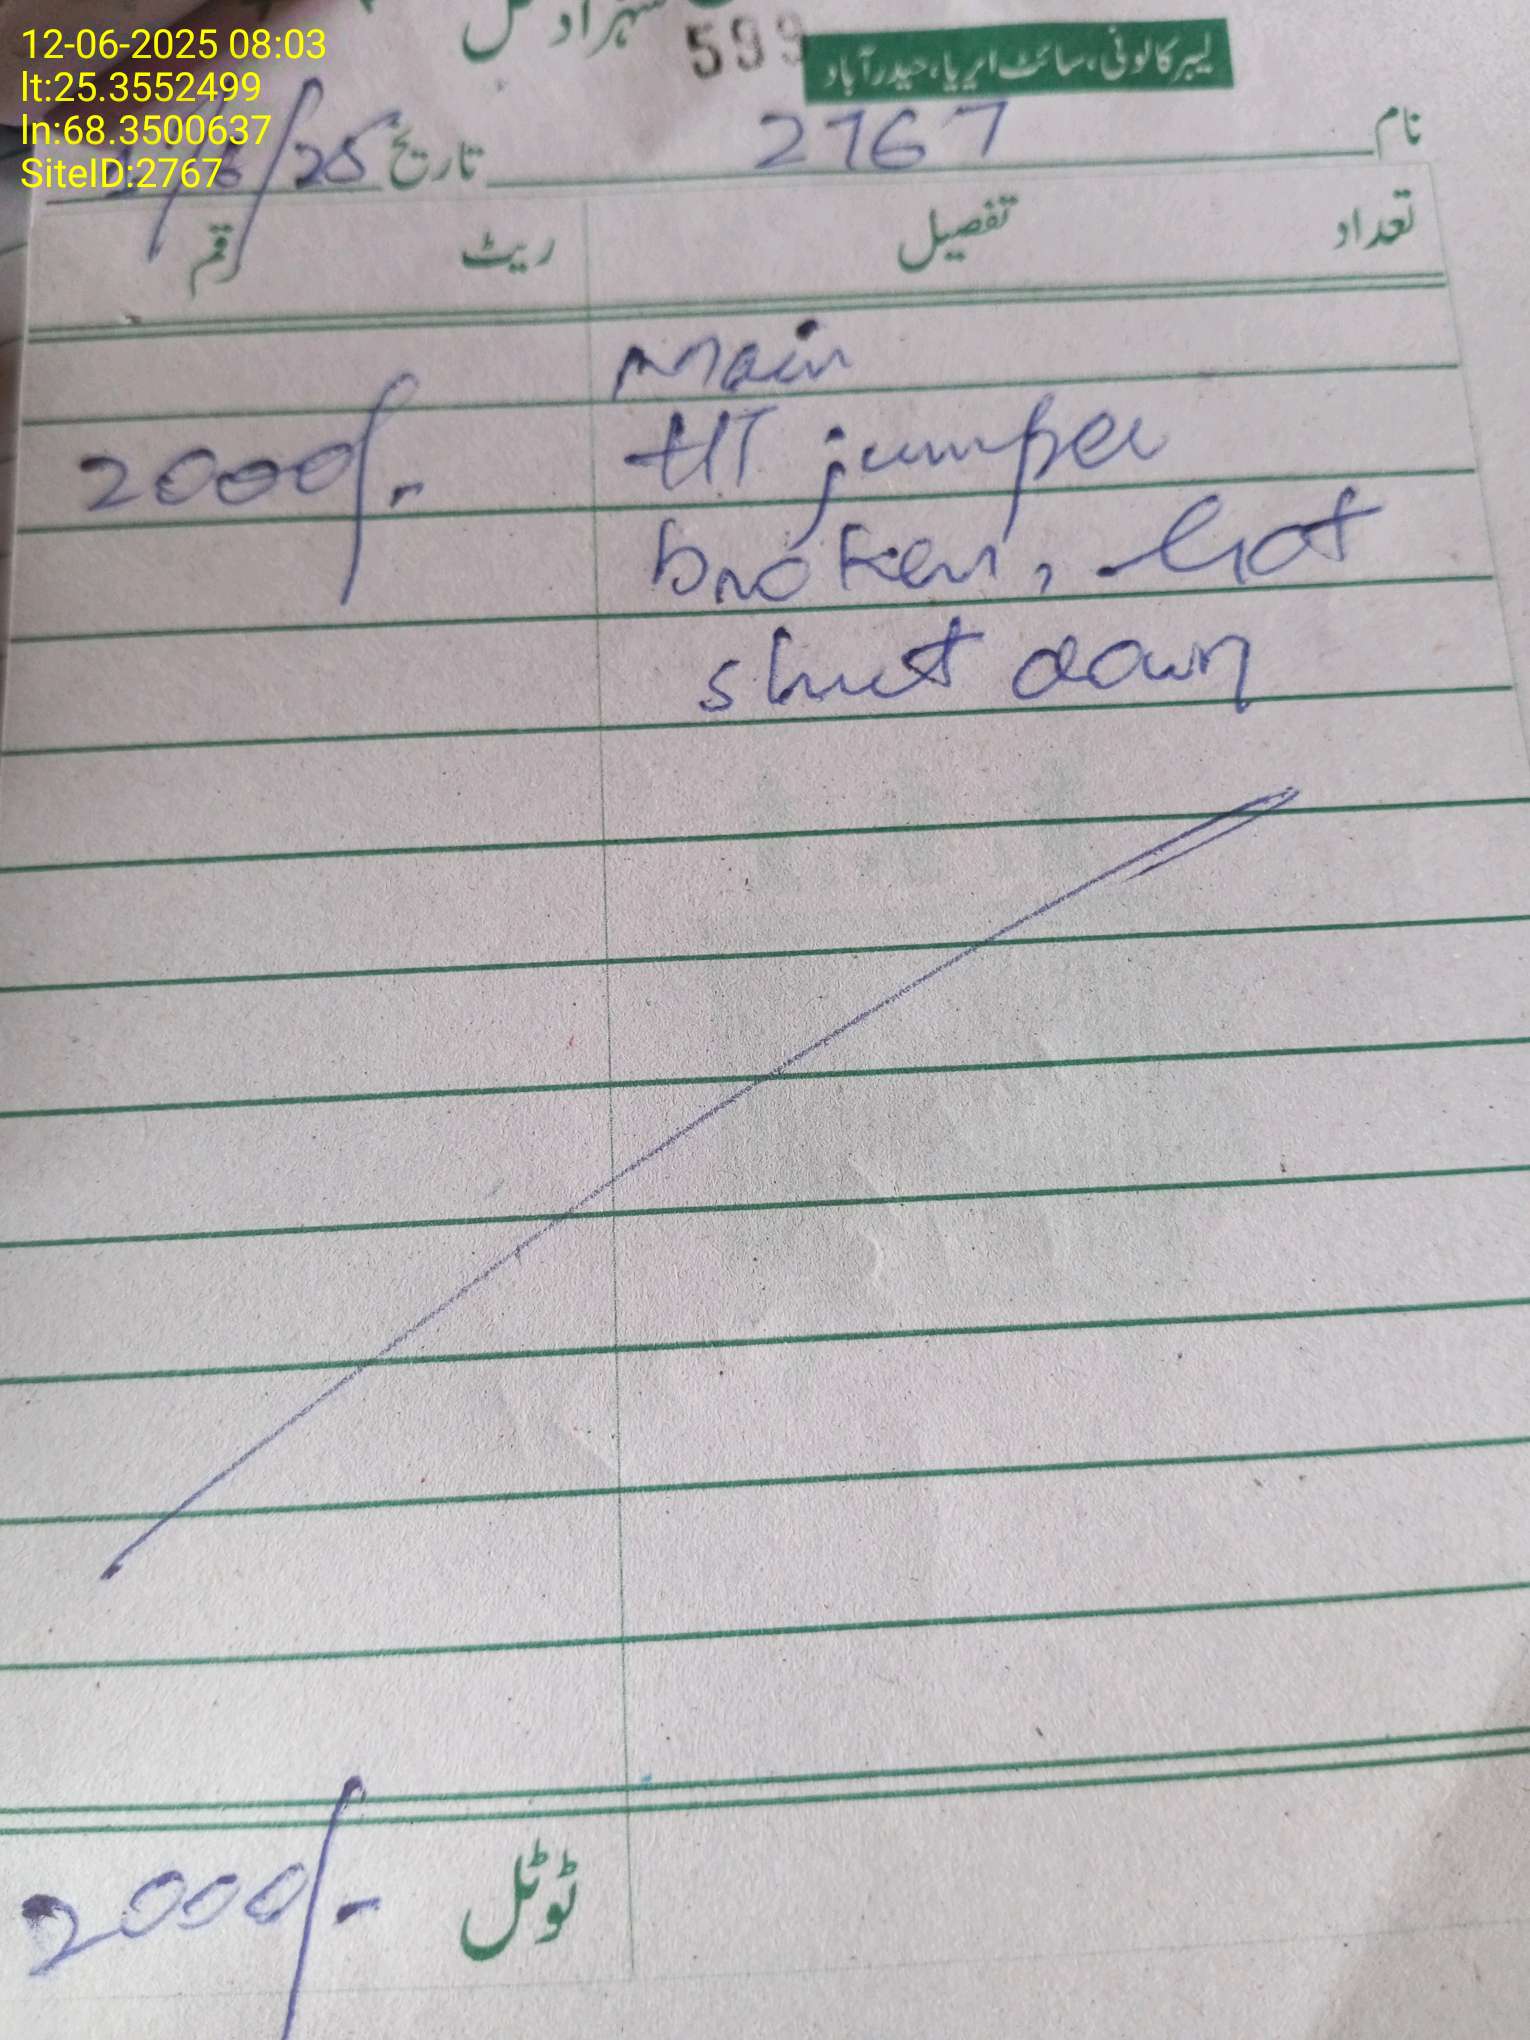 12-06-2025 08:03
lt:25.3552499
ln:68.3500637
SiteID:2767
599
لیبر کالونی، سائٹ ایریا، حیدرآباد
نام 2767 تاریخ /6/25
تعداد تفصیل ریٹ رقم
Main
HT jumper 2000/-
broken, Hot
shut down
ٹوٹل 2000/-